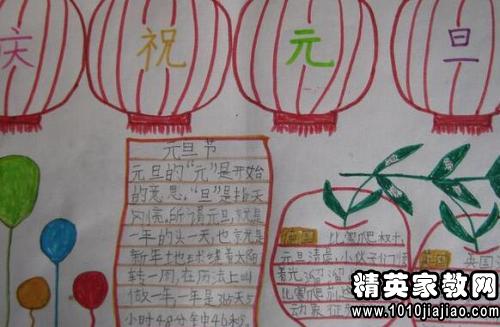 庆祝元旦
元旦节
元旦的“元”是开始
的意思，“旦”是指天
刚亮，所谓元旦，就是
一年的头一天，也就是
新年 地球绕着太阳
转一周，在历法上叫
做一年，一年是365天5
小时48分钟46秒。
德国
比赛爬树
元旦清晨，小伙子们顺
着光
比赛爬
动 象征
英国
精英家教网
www.1010jiajiao.com